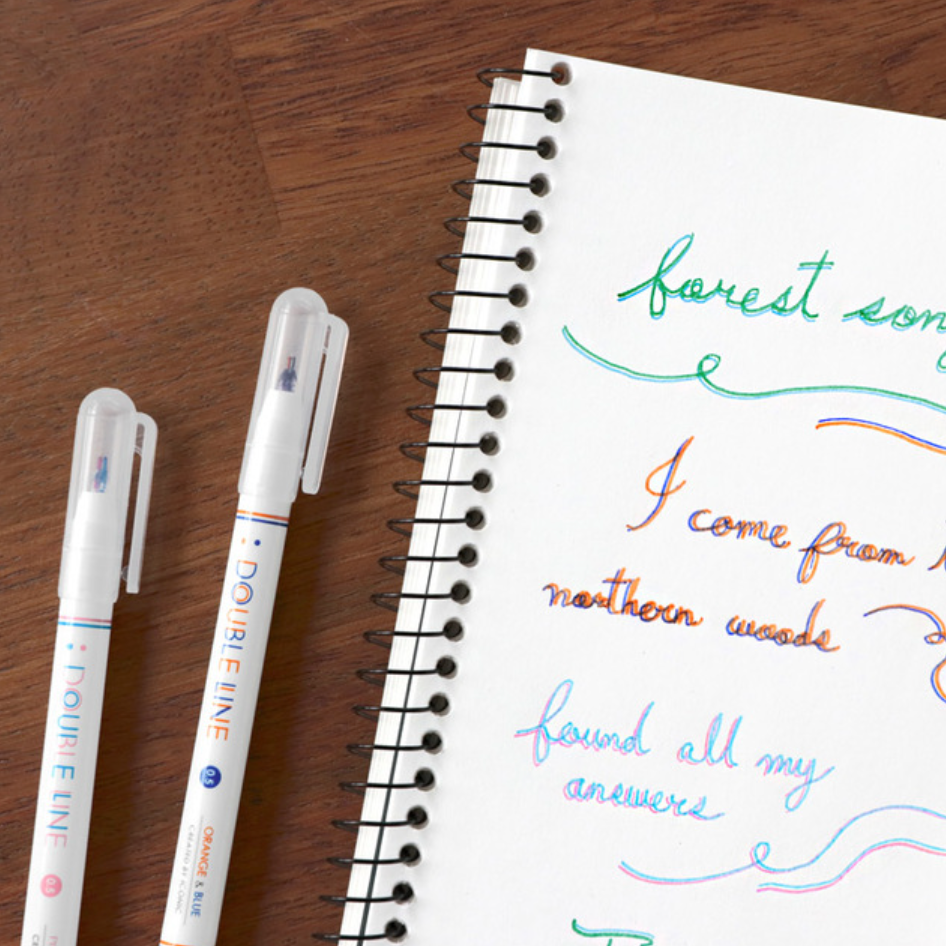 forest son
I come from
northern woods
found all my
answers
DOUBLE LINE
0.5
DOUBLE LINE
0.5
ORANGE & BLUE
CREATED BY ICONIC